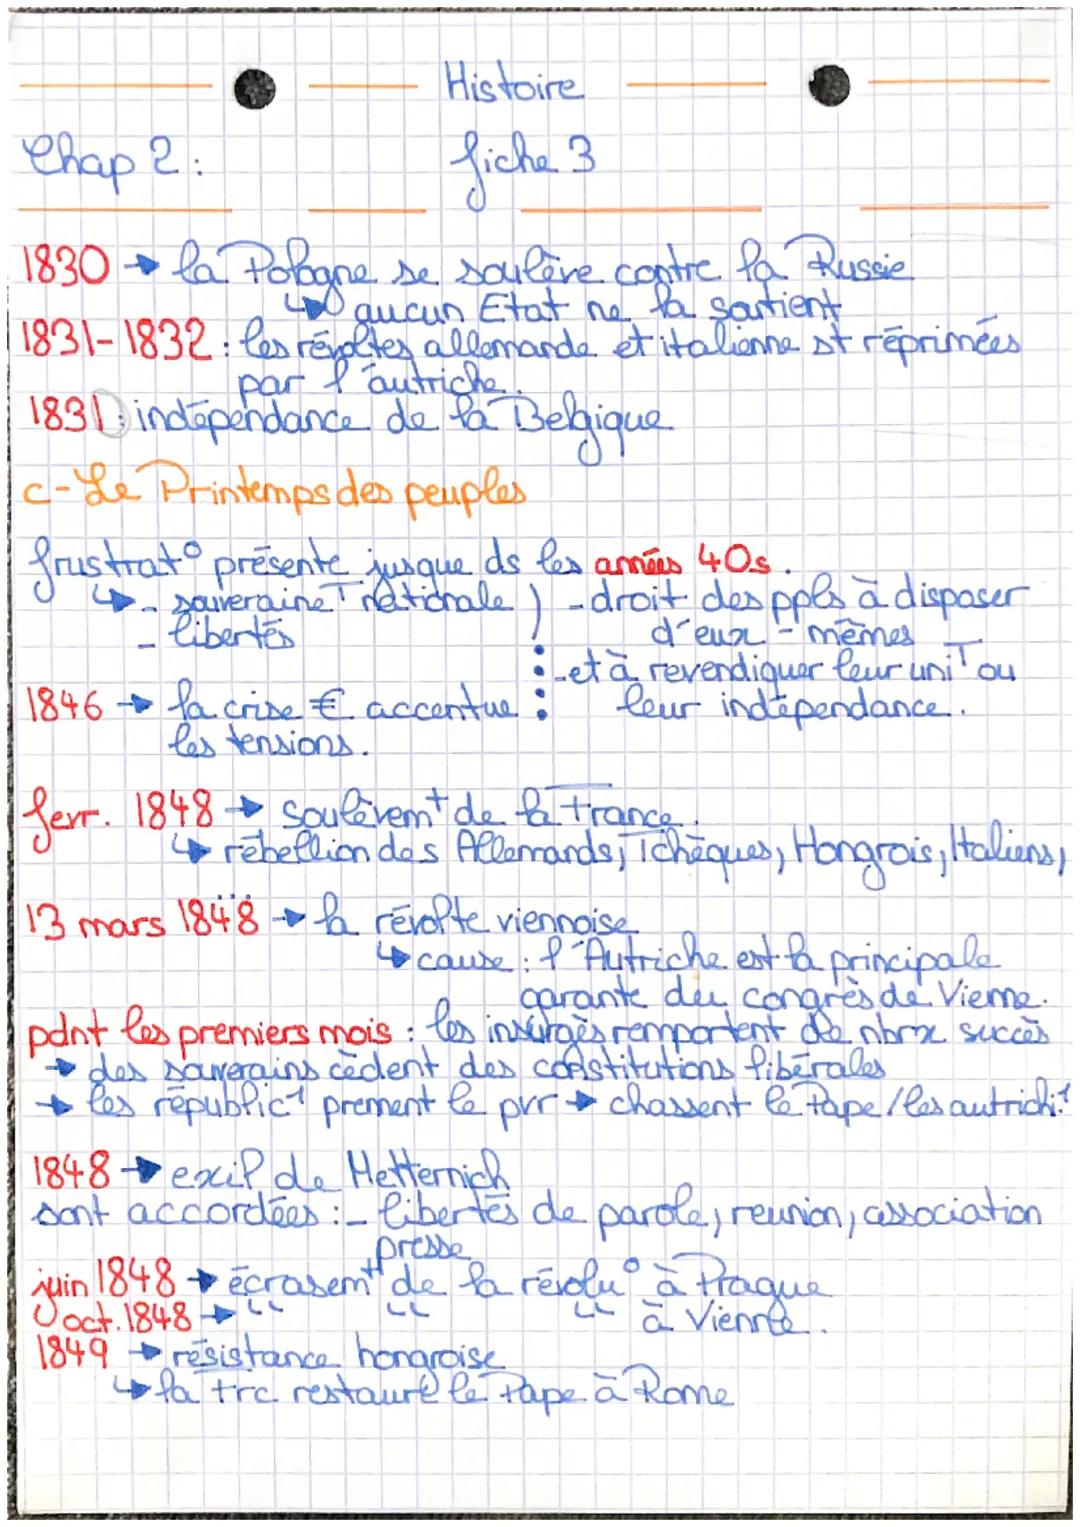 Histoire
Chap 2 : fiche 3
1830 → la Pologne se soulève contre la Russie
↳ aucun Etat ne la soutient
1831-1832 : les révoltes allemande et italienne st réprimées
par l'autriche.
1831 : indépendance de la Belgique
c- Le Printemps des peuples
frustrat° présente jusque ds les années 40s.
↳ - souveraineT nationale ) - droit des ppls à disposer
- libertés d'eux-mêmes
- et à revendiquer leur uniT ou
1846 → la crise € accentue leur indépendance.
les tensions.
fevr. 1848 → soulèvemt de la France.
↳ rébellion des Allemands, Tchèques, Hongrois, Italiens,
13 mars 1848 → la révolte viennoise
↳ cause : l'Autriche est la principale
garante du congrès de Vienne.
pdnt les premiers mois : les insurgés remportent de nbrx succès
→ des souverains cèdent des constitutions libérales
→ les républic1 prennent le pvr → chassent le Pape/les autrichi.1
1848 → exil de Metternich
sont accordées : - libertés de parole, reunion, association
presse
juin 1848 → écrasemt de la révolu° à Prague
oct. 1848 → " " " à Vienne.
1849 → résistance hongroise
↳ la Frc restaure le Pape à Rome